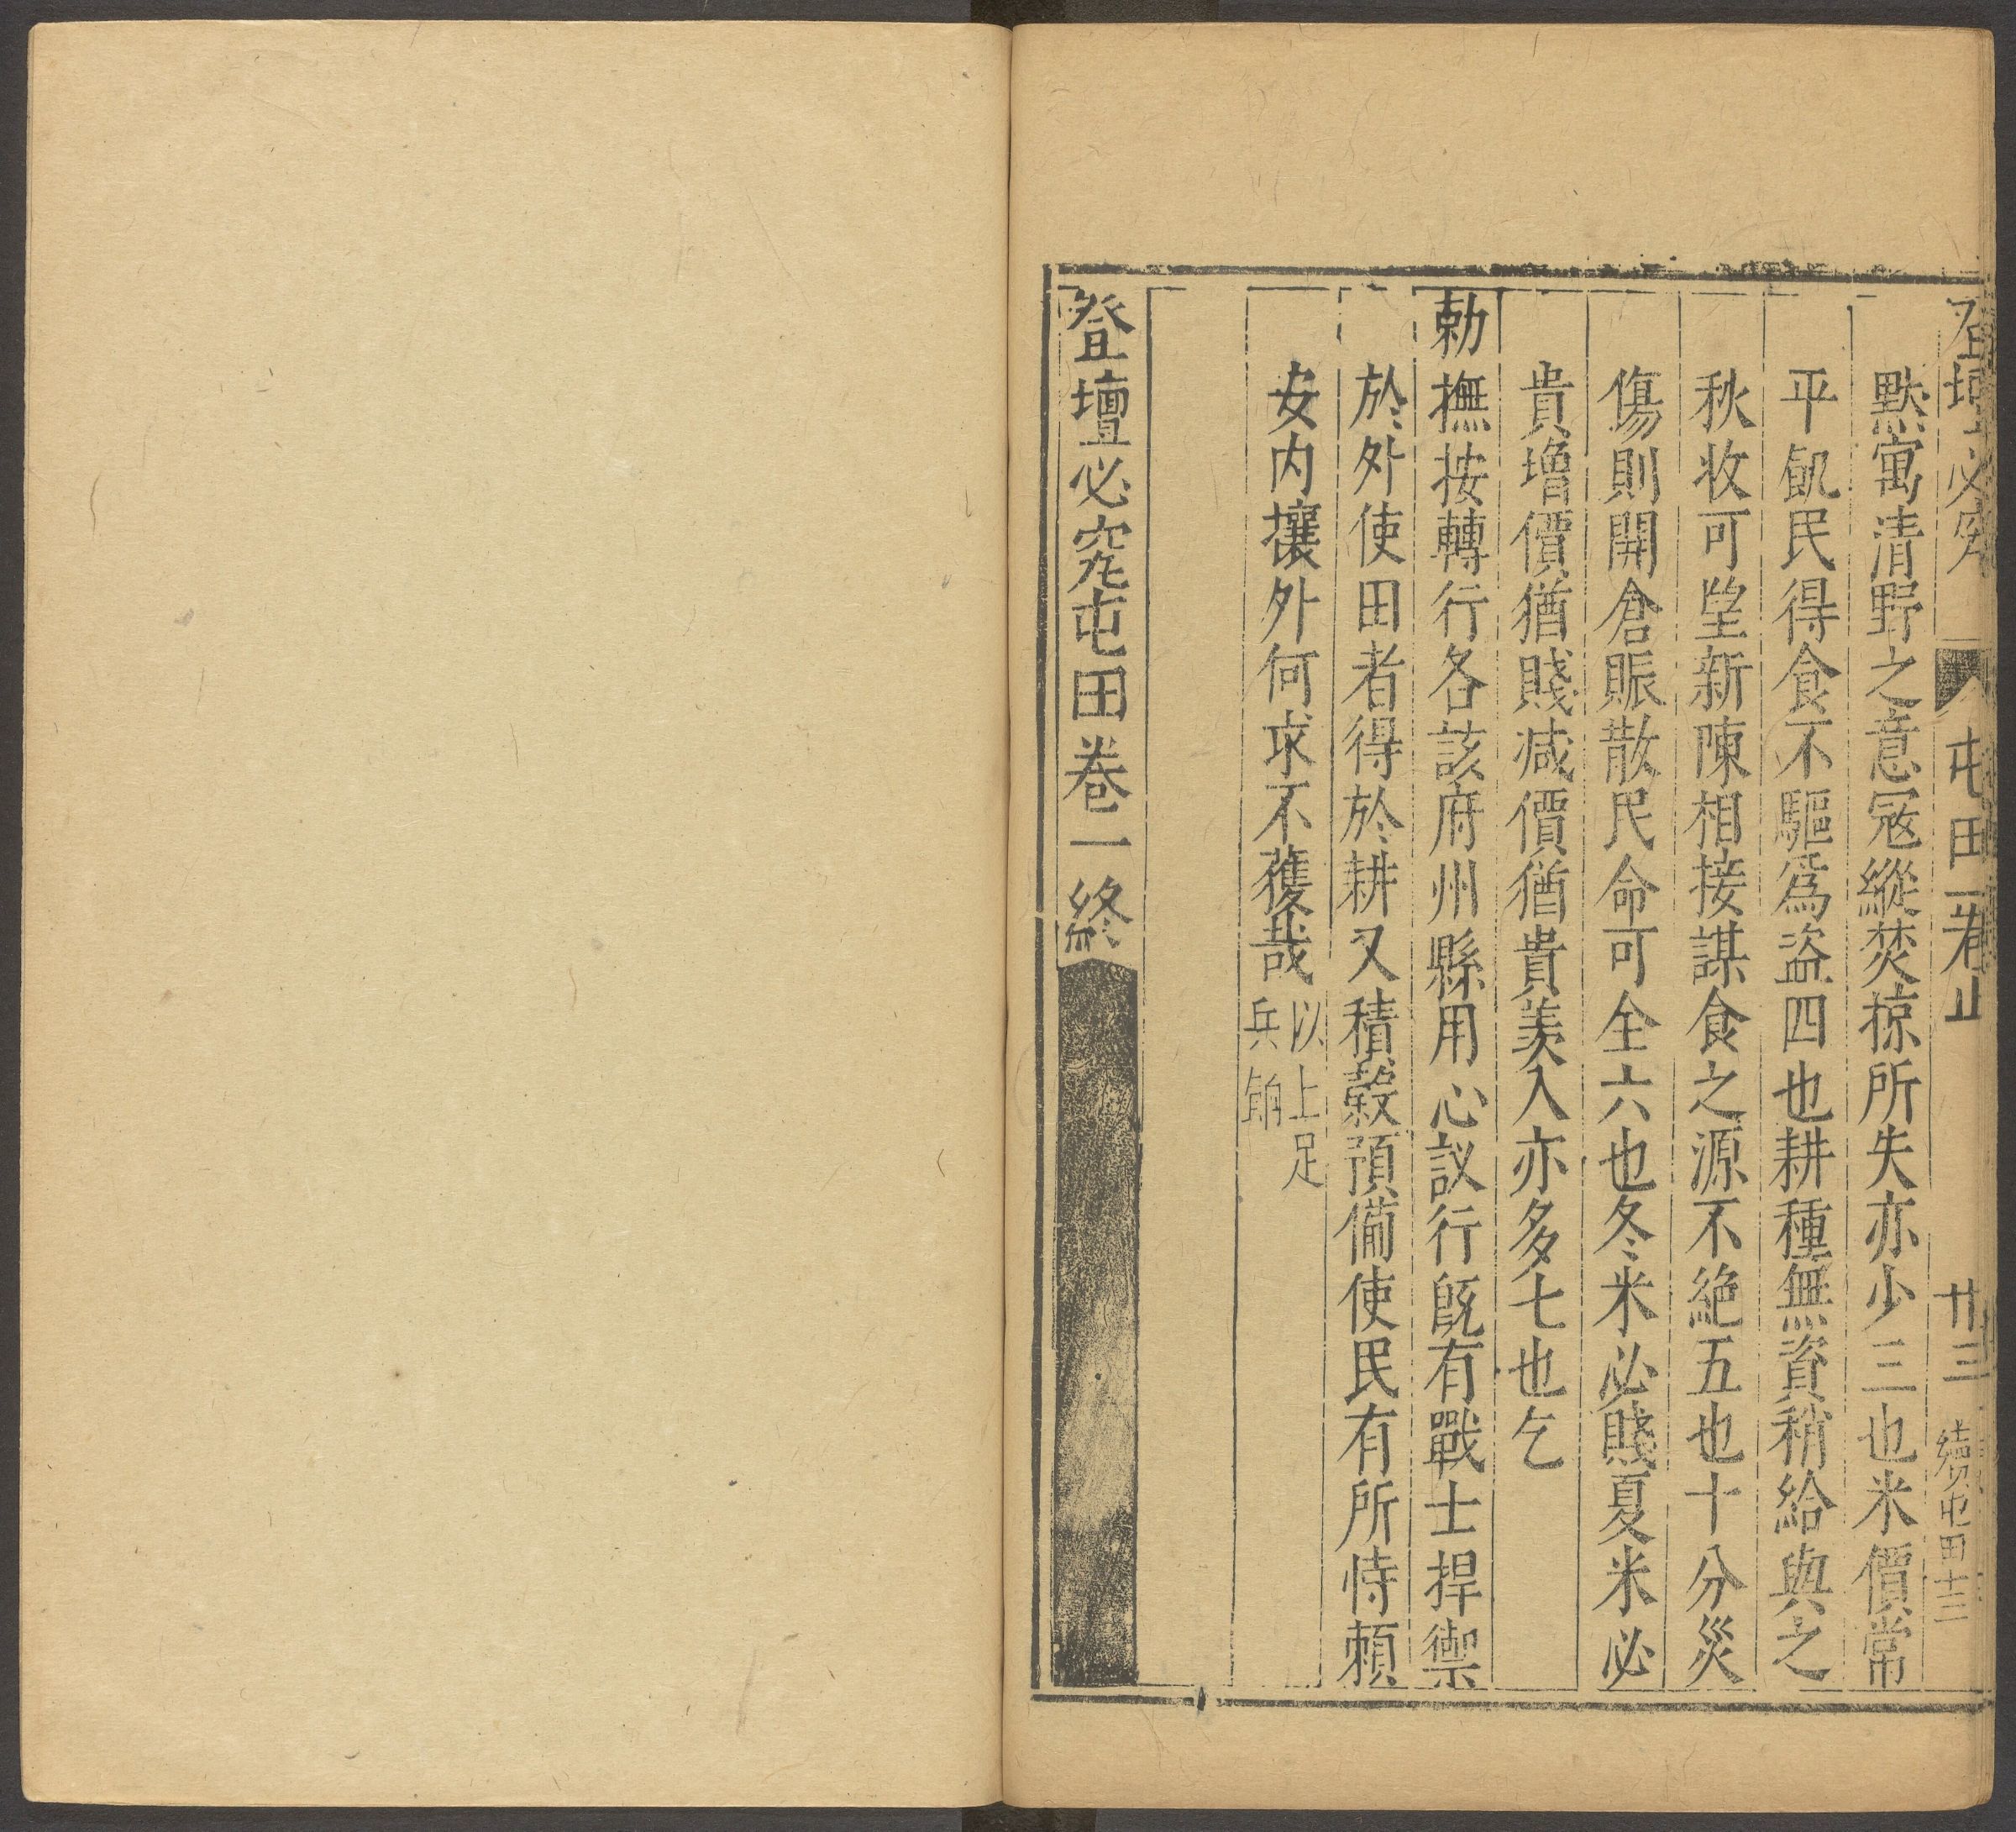 登壇必究
屯田一卷止
廿三
續屯田十三
默寓清野之意寇縱焚掠所失亦少三也米價常
平飢民得食不驅爲盗四也耕種無資稍給與之
秋收可望新陳相接謀食之源不絶五也十分災
傷則開倉賑散民命可全六也冬米必賤夏米必
貴增價猶賤减價猶貴羡入亦多七也乞
勅撫按轉行各該府州縣用心議行旣有戰士捍禦
於外使田者得於耕又積穀預備使民有所恃頼
安内攘外何求不獲哉
以上足
兵餉
登壇必究屯田卷一終